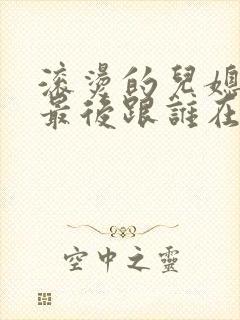 滚燙的兒媳
最後跟誰在
空中之靈